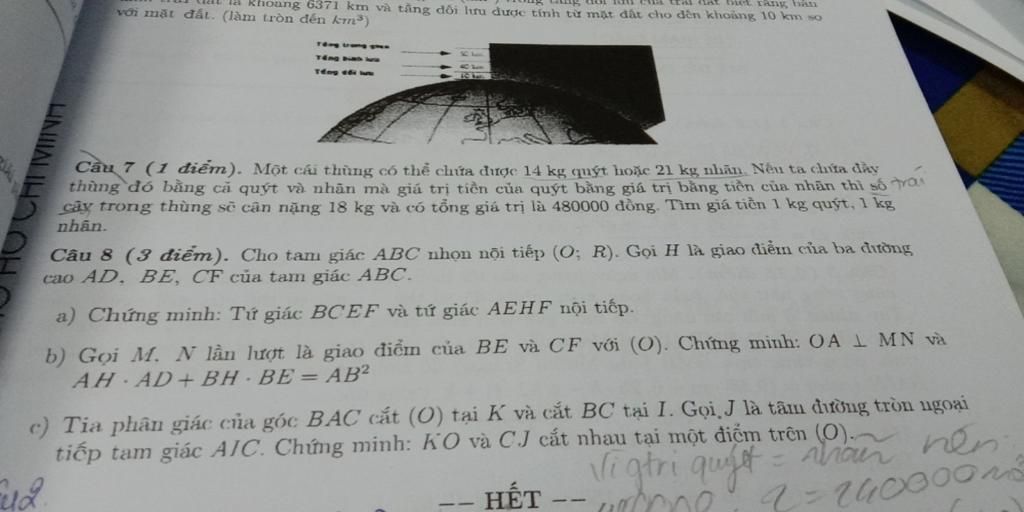 là khoảng 6371 km và tầng đối lưu được tính từ mặt đất cho đến khoảng 10 km so
với mặt đất. (làm tròn đến km³)
Tầng trung gian
Tầng bình lưu
Tầng đối lưu
50 km
40 km
10 km
HO CHI MINH
Câu 7 (1 điểm). Một cái thùng có thể chứa được 14 kg quýt hoặc 21 kg nhãn. Nếu ta chứa đầy
thùng đó bằng cả quýt và nhãn mà giá trị tiền của quýt bằng giá trị bằng tiền của nhãn thì số trái
cây trong thùng sẽ cân nặng 18 kg và có tổng giá trị là 480000 đồng. Tìm giá tiền 1 kg quýt, 1 kg
nhãn.
Câu 8 (3 điểm). Cho tam giác ABC nhọn nội tiếp (O; R). Gọi H là giao điểm của ba đường
cao AD, BE, CF của tam giác ABC.
a) Chứng minh: Tứ giác BCEF và tứ giác AEHF nội tiếp.
b) Gọi M, N lần lượt là giao điểm của BE và CF với (O). Chứng minh: OA ⊥ MN và
AH · AD + BH · BE = AB²
c) Tia phân giác của góc BAC cắt (O) tại K và cắt BC tại I. Gọi J là tâm đường tròn ngoại
tiếp tam giác AIC. Chứng minh: KO và CJ cắt nhau tại một điểm trên (O).
Vì gtri quýt = nhãn nên
2 = 240000
-- HẾT --